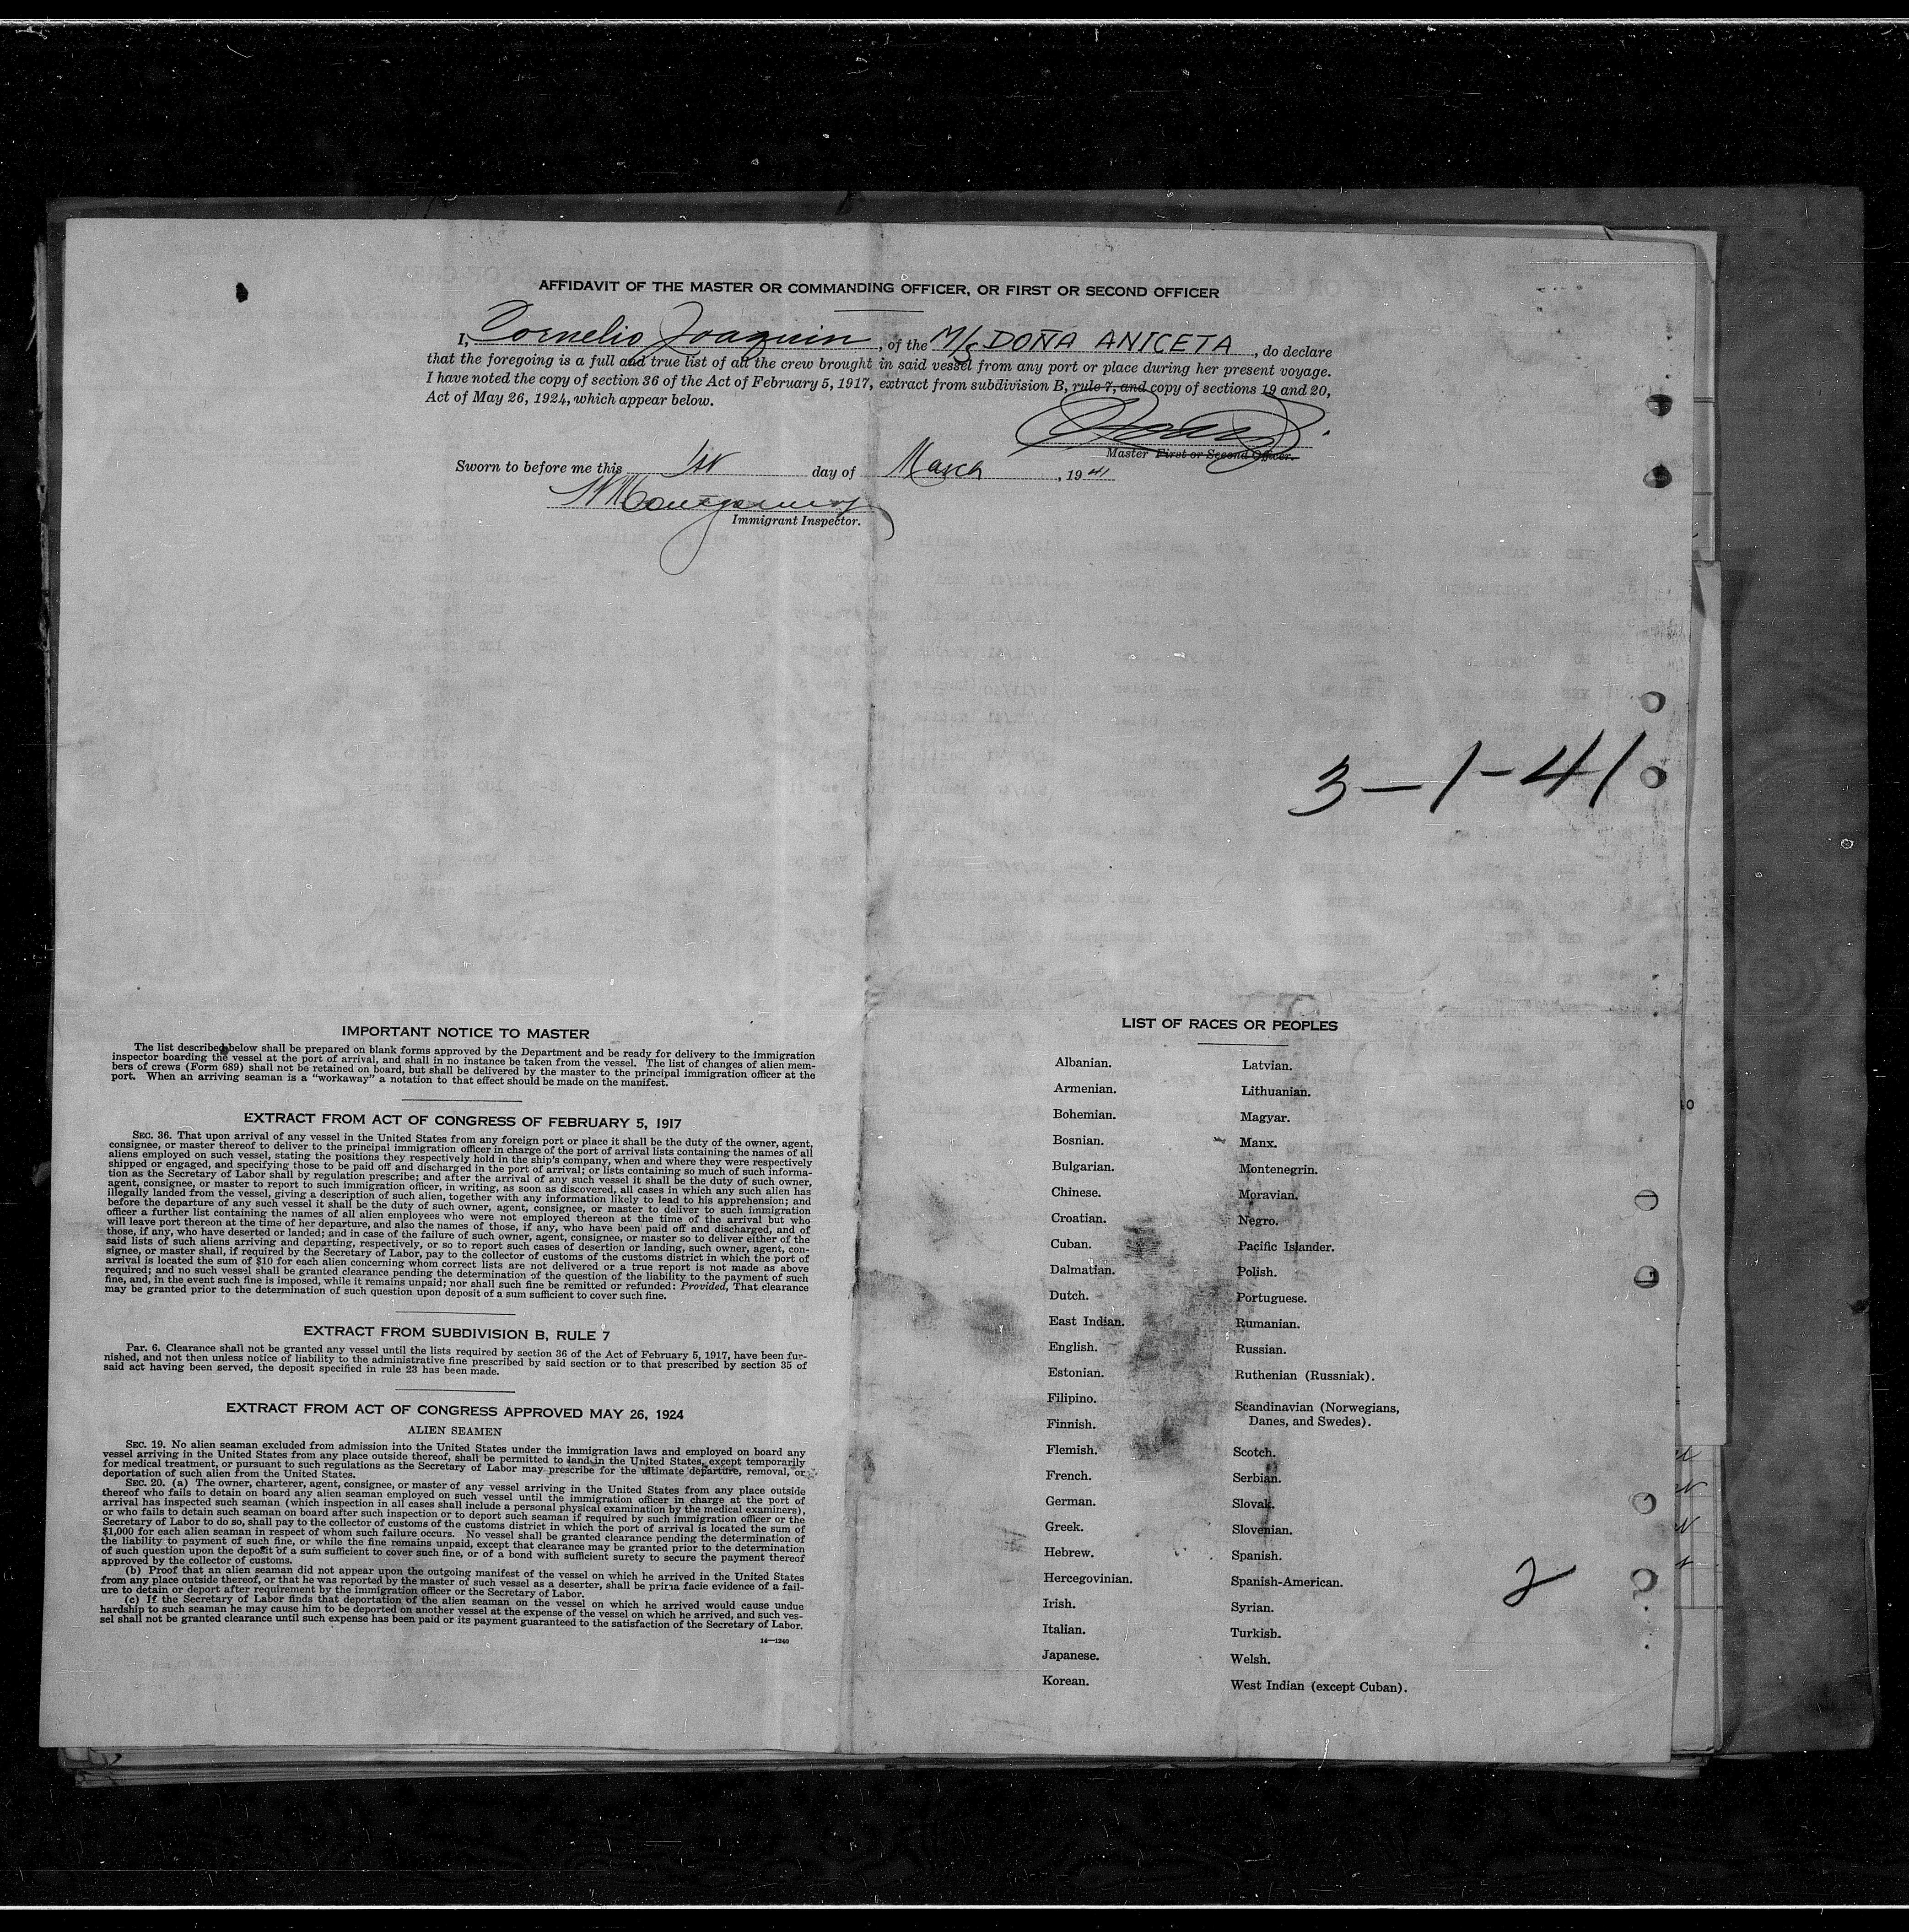 AFFIDAVIT OF THE MASTER OR COMMANDING OFFICER, OR FIRST OR SECOND OFFICER
I, Cornelio Joaquin, of the M/S DOÑA ANICETA, do declare
that the foregoing is a full and true list of all the crew brought in said vessel from any port or place during her present voyage.
I have noted the copy of section 36 of the Act of February 5, 1917, extract from subdivision B, rule 7, and copy of sections 19 and 20,
Act of May 26, 1924, which appear below.
Master First or Second Officer.
Sworn to before me this 1st day of March, 1941
Montgomery
Immigrant Inspector.
3-1-41
IMPORTANT NOTICE TO MASTER
The list described below shall be prepared on blank forms approved by the Department and be ready for delivery to the immigration
inspector boarding the vessel at the port of arrival, and shall in no instance be taken from the vessel. The list of changes of alien mem-
bers of crews (Form 689) shall not be retained on board, but shall be delivered by the master to the principal immigration officer at the
port. When an arriving seaman is a "workaway" a notation to that effect should be made on the manifest.
EXTRACT FROM ACT OF CONGRESS OF FEBRUARY 5, 1917
SEC. 36. That upon arrival of any vessel in the United States from any foreign port or place it shall be the duty of the owner, agent,
consignee, or master thereof to deliver to the principal immigration officer in charge of the port of arrival lists containing the names of all
aliens employed on such vessel, stating the positions they respectively hold in the ship's company, when and where they were respectively
shipped or engaged, and specifying those to be paid off and discharged in the port of arrival; or lists containing so much of such informa-
tion as the Secretary of Labor shall by regulation prescribe; and after the arrival of any such vessel it shall be the duty of such owner,
agent, consignee, or master to report to such immigration officer, in writing, as soon as discovered, all cases in which any such alien has
illegally landed from the vessel, giving a description of such alien, together with any information likely to lead to his apprehension; and
before the departure of any such vessel it shall be the duty of such owner, agent, consignee, or master to deliver to such immigration
officer a further list containing the names of all alien employees who were not employed thereon at the time of the arrival but who
will leave port thereon at the time of her departure, and also the names of those, if any, who have been paid off and discharged, and of
those, if any, who have deserted or landed; and in case of the failure of such owner, agent, consignee, or master so to deliver either of the
said lists of such aliens arriving and departing, respectively, or so to report such cases of desertion or landing, such owner, agent, con-
signee, or master shall, if required by the Secretary of Labor, pay to the collector of customs of the customs district in which the port of
arrival is located the sum of $10 for each alien concerning whom correct lists are not delivered or a true report is not made as above
required; and no such vessel shall be granted clearance pending the determination of the question of the liability to the payment of such
fine, and, in the event such fine is imposed, while it remains unpaid; nor shall such fine be remitted or refunded: Provided, That clearance
may be granted prior to the determination of such question upon deposit of a sum sufficient to cover such fine.
EXTRACT FROM SUBDIVISION B, RULE 7
Par. 6. Clearance shall not be granted any vessel until the lists required by section 36 of the Act of February 5, 1917, have been fur-
nished, and not then unless notice of liability to the administrative fine prescribed by said section or to that prescribed by section 35 of
said act having been served, the deposit specified in rule 23 has been made.
EXTRACT FROM ACT OF CONGRESS APPROVED MAY 26, 1924
ALIEN SEAMEN
SEC. 19. No alien seaman excluded from admission into the United States under the immigration laws and employed on board any
vessel arriving in the United States from any place outside thereof, shall be permitted to land in the United States, except temporarily
for medical treatment, or pursuant to such regulations as the Secretary of Labor may prescribe for the ultimate departure, removal, or
deportation of such alien from the United States.
SEC. 20. (a) The owner, charterer, agent, consignee, or master of any vessel arriving in the United States from any place outside
thereof who fails to detain on board any alien seaman employed on such vessel until the immigration officer in charge at the port of
arrival has inspected such seaman (which inspection in all cases shall include a personal physical examination by the medical examiners),
or who fails to detain such seaman on board after such inspection or to deport such seaman if required by such immigration officer or the
Secretary of Labor to do so, shall pay to the collector of customs of the customs district in which the port of arrival is located the sum of
$1,000 for each alien seaman in respect of whom such failure occurs. No vessel shall be granted clearance pending the determination of
the liability to payment of such fine, or while the fine remains unpaid, except that clearance may be granted prior to the determination
of such question upon the deposit of a sum sufficient to cover such fine, or of a bond with sufficient surety to secure the payment thereof
approved by the collector of customs.
(b) Proof that an alien seaman did not appear upon the outgoing manifest of the vessel on which he arrived in the United States
from any place outside thereof, or that he was reported by the master of such vessel as a deserter, shall be prima facie evidence of a fail-
ure to detain or deport after requirement by the immigration officer or the Secretary of Labor.
(c) If the Secretary of Labor finds that deportation of the alien seaman on the vessel on which he arrived would cause undue
hardship to such seaman he may cause him to be deported on another vessel at the expense of the vessel on which he arrived, and such ves-
sel shall not be granted clearance until such expense has been paid or its payment guaranteed to the satisfaction of the Secretary of Labor.
14—1240
LIST OF RACES OR PEOPLES
Albanian.
Armenian.
Bohemian.
Bosnian.
Bulgarian.
Chinese.
Croatian.
Cuban.
Dalmatian.
Dutch.
East Indian.
English.
Estonian.
Filipino.
Finnish.
Flemish.
French.
German.
Greek.
Hebrew.
Hercegovinian.
Irish.
Italian.
Japanese.
Korean.
Latvian.
Lithuanian.
Magyar.
Manx.
Montenegrin.
Moravian.
Negro.
Pacific Islander.
Polish.
Portuguese.
Rumanian.
Russian.
Ruthenian (Russniak).
Scandinavian (Norwegians,
Danes, and Swedes).
Scotch.
Serbian.
Slovak.
Slovenian.
Spanish.
Spanish-American.
Syrian.
Turkish.
Welsh.
West Indian (except Cuban).
2